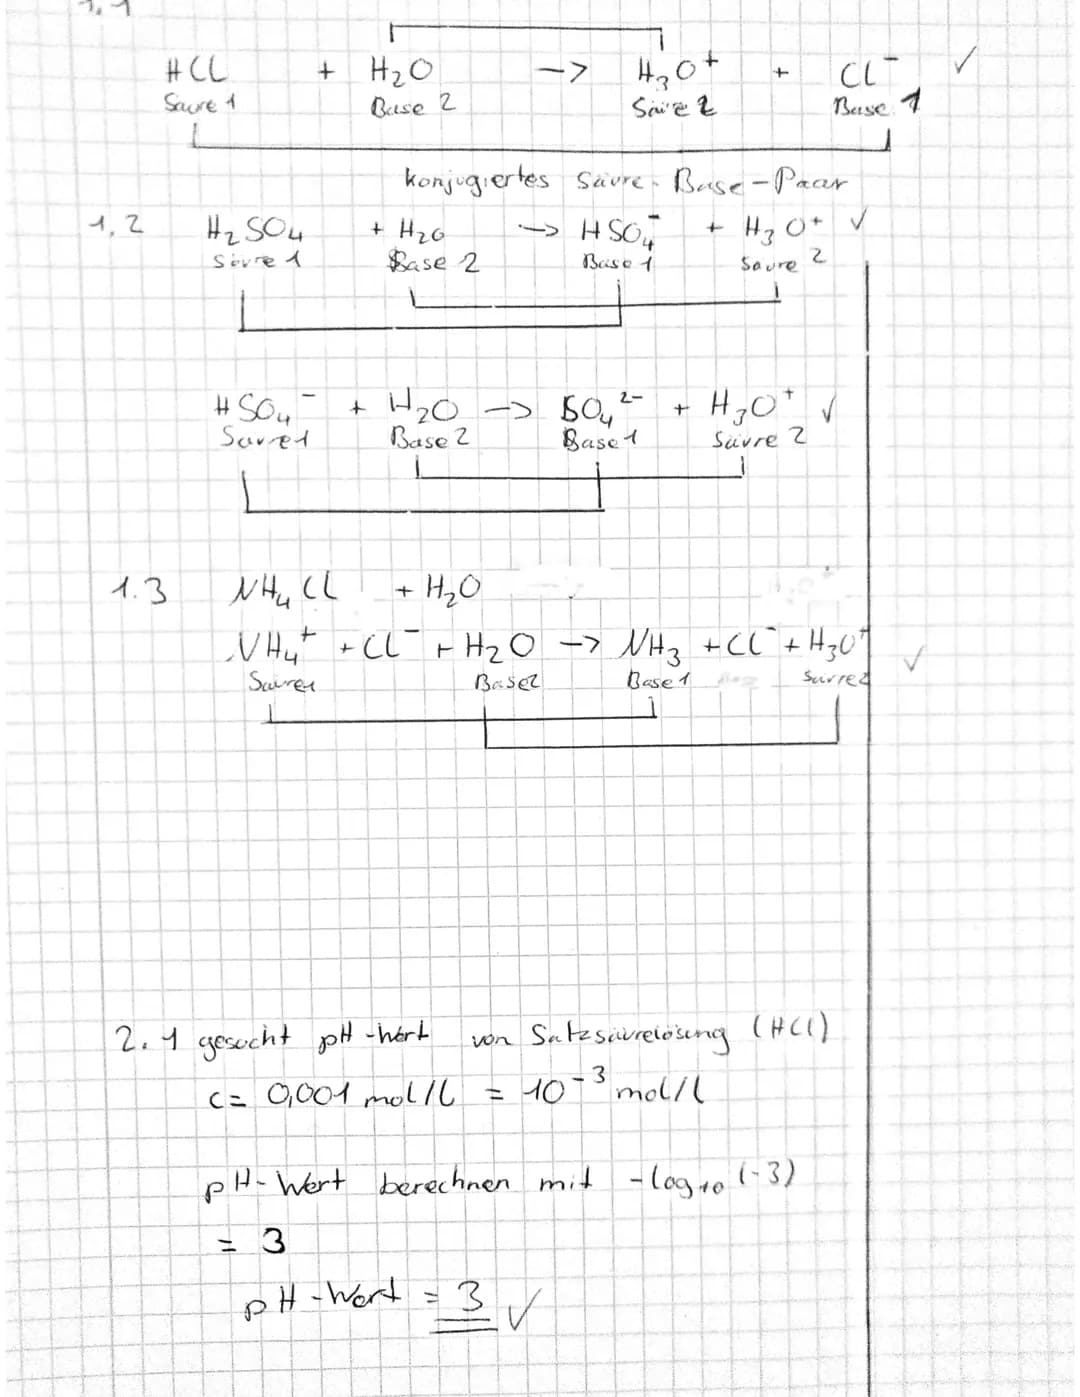 1.1
HCL + H₂O -> H₃O⁺ + CL⁻ ✓
Säure 1 Base 2 Säure 2 Base 1
konjugiertes Säure-Base-Paar
1,2 H₂SO₄ + H₂O -> HSO₄⁻ + H₃O⁺ ✓
Säure 1 Base 2 Base 1 Säure 2
HSO₄⁻ + H₂O -> SO₄²⁻ + H₃O⁺ ✓
Säure1 Base 2 Base 1 Säure 2
1.3 NH₄CL + H₂O
NH₄⁺ + CL⁻ + H₂O -> NH₃ + CL⁻ + H₃O⁺ ✓
Säure1 Base2 Base 1 Säure2
2.1 gesucht pH-Wert von Salzsäurelösung (HCl)
c = 0,001 mol/L = 10⁻³ mol/L
pH-Wert berechnen mit -log₁₀ (-3)
= 3
pH-Wert = 3 ✓